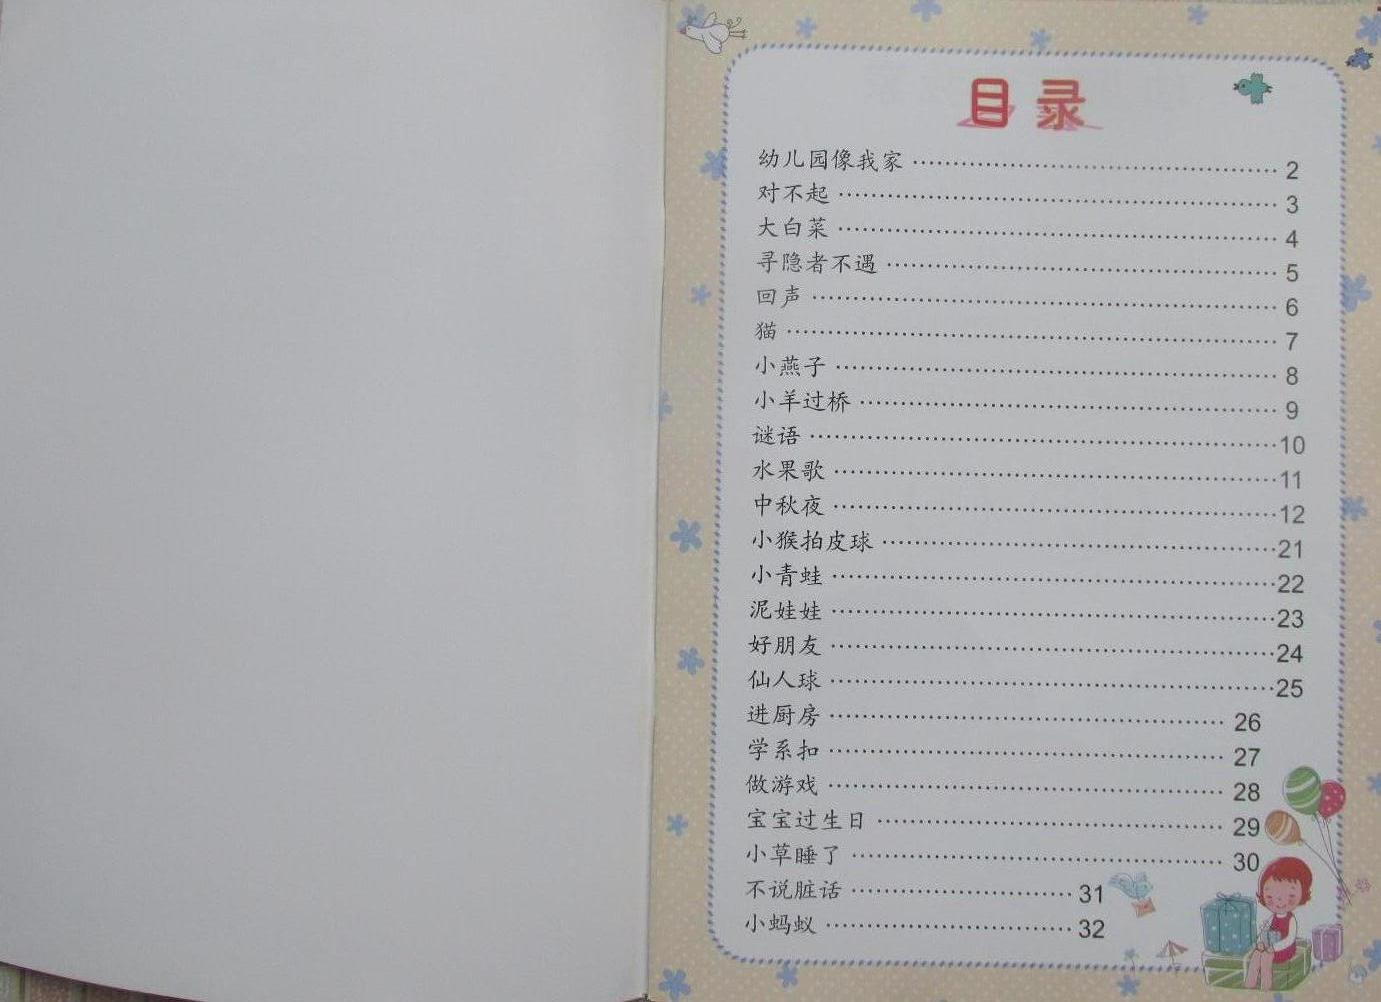 目录
幼儿园像我家 2
对不起 3
大白菜 4
寻隐者不遇 5
回声 6
猫 7
小燕子 8
小羊过桥 9
谜语 10
水果歌 11
中秋夜 12
小猴拍皮球 21
小青蛙 22
泥娃娃 23
好朋友 24
仙人球 25
进厨房 26
学系扣 27
做游戏 28
宝宝过生日 29
小草睡了 30
不说脏话 31
小蚂蚁 32